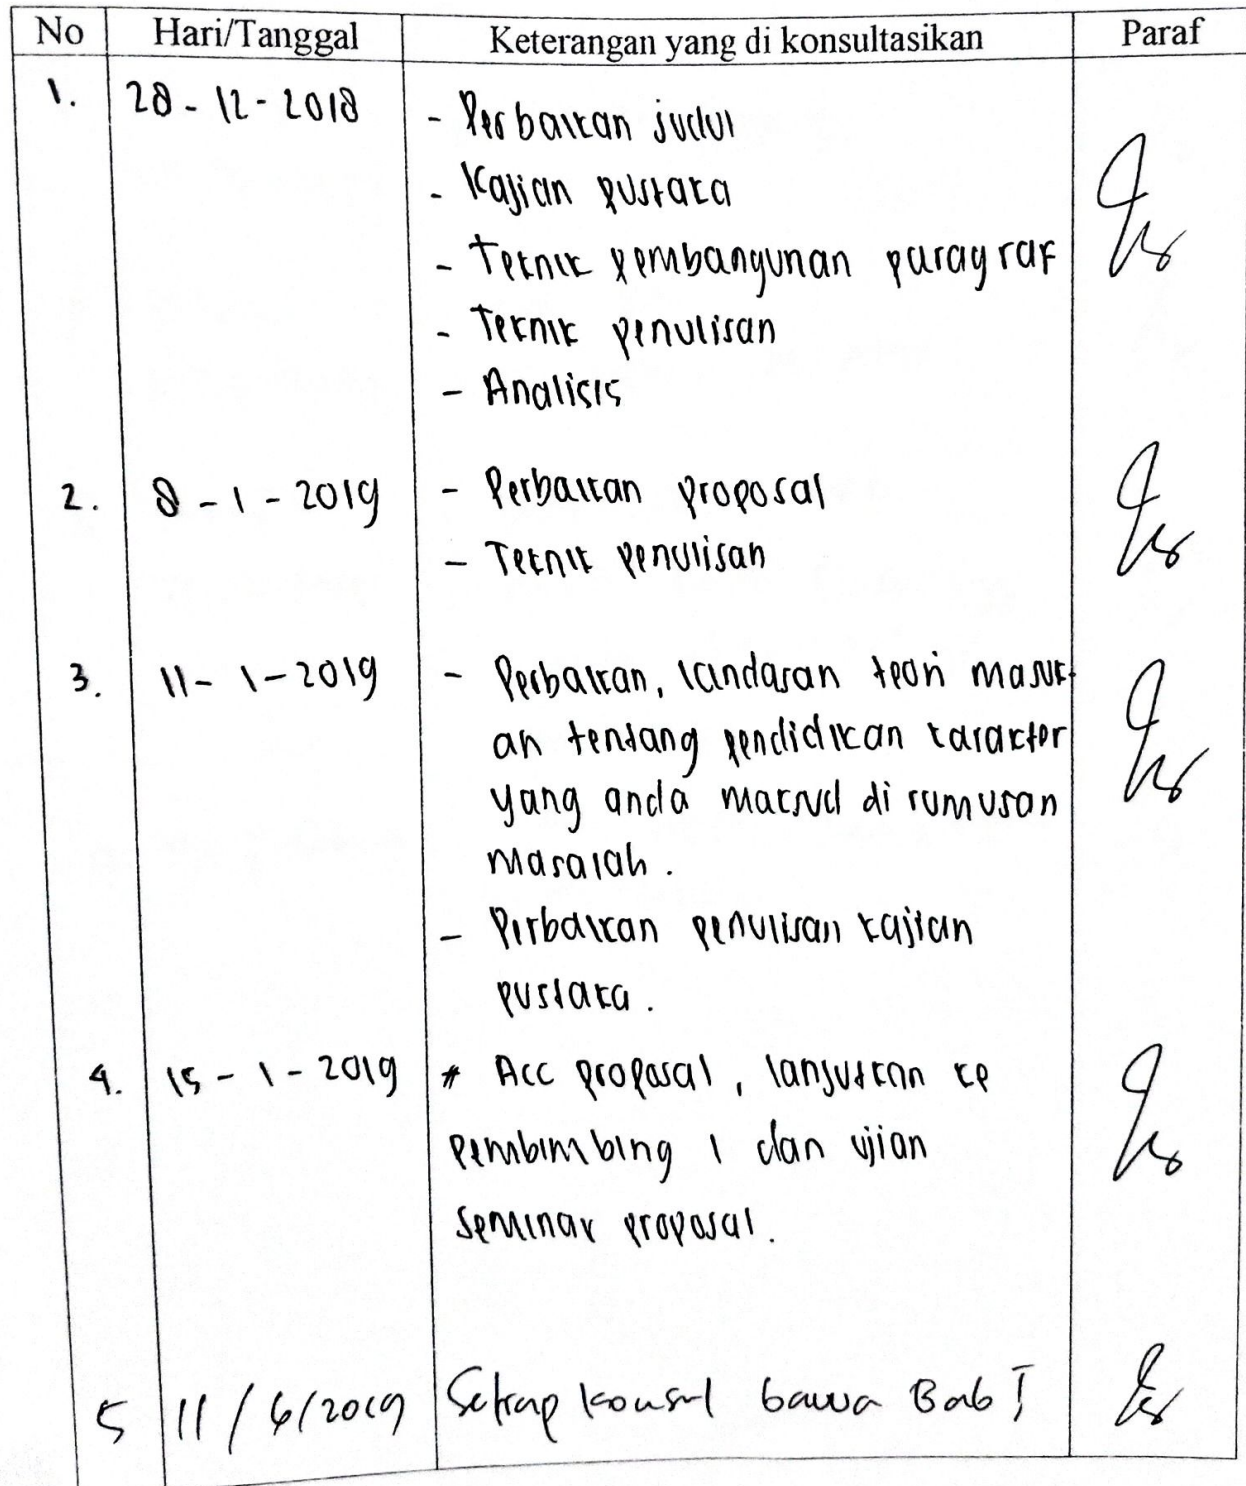 No Hari/Tanggal Keterangan yang di konsultasikan Paraf
1. 28 - 12 - 2018 - Perbaikan judul
- Kajian pustaka
- Teknik pembangunan paragraf
- Teknik penulisan
- Analisis
2. 8 - 1 - 2019 - Perbaikan proposal
- Teknik penulisan
3. 11 - 1 - 2019 - Perbaikan, landasan teori masuk-
an tentang pendidikan karakter
yang anda maksud di rumusan
masalah.
- Perbaikan penulisan kajian
pustaka.
4. 15 - 1 - 2019 * Acc proposal, lanjutkan ke
pembimbing 1 dan ujian
seminar proposal.
5 11 / 6 / 2019 Setiap konsul bawa Bab I